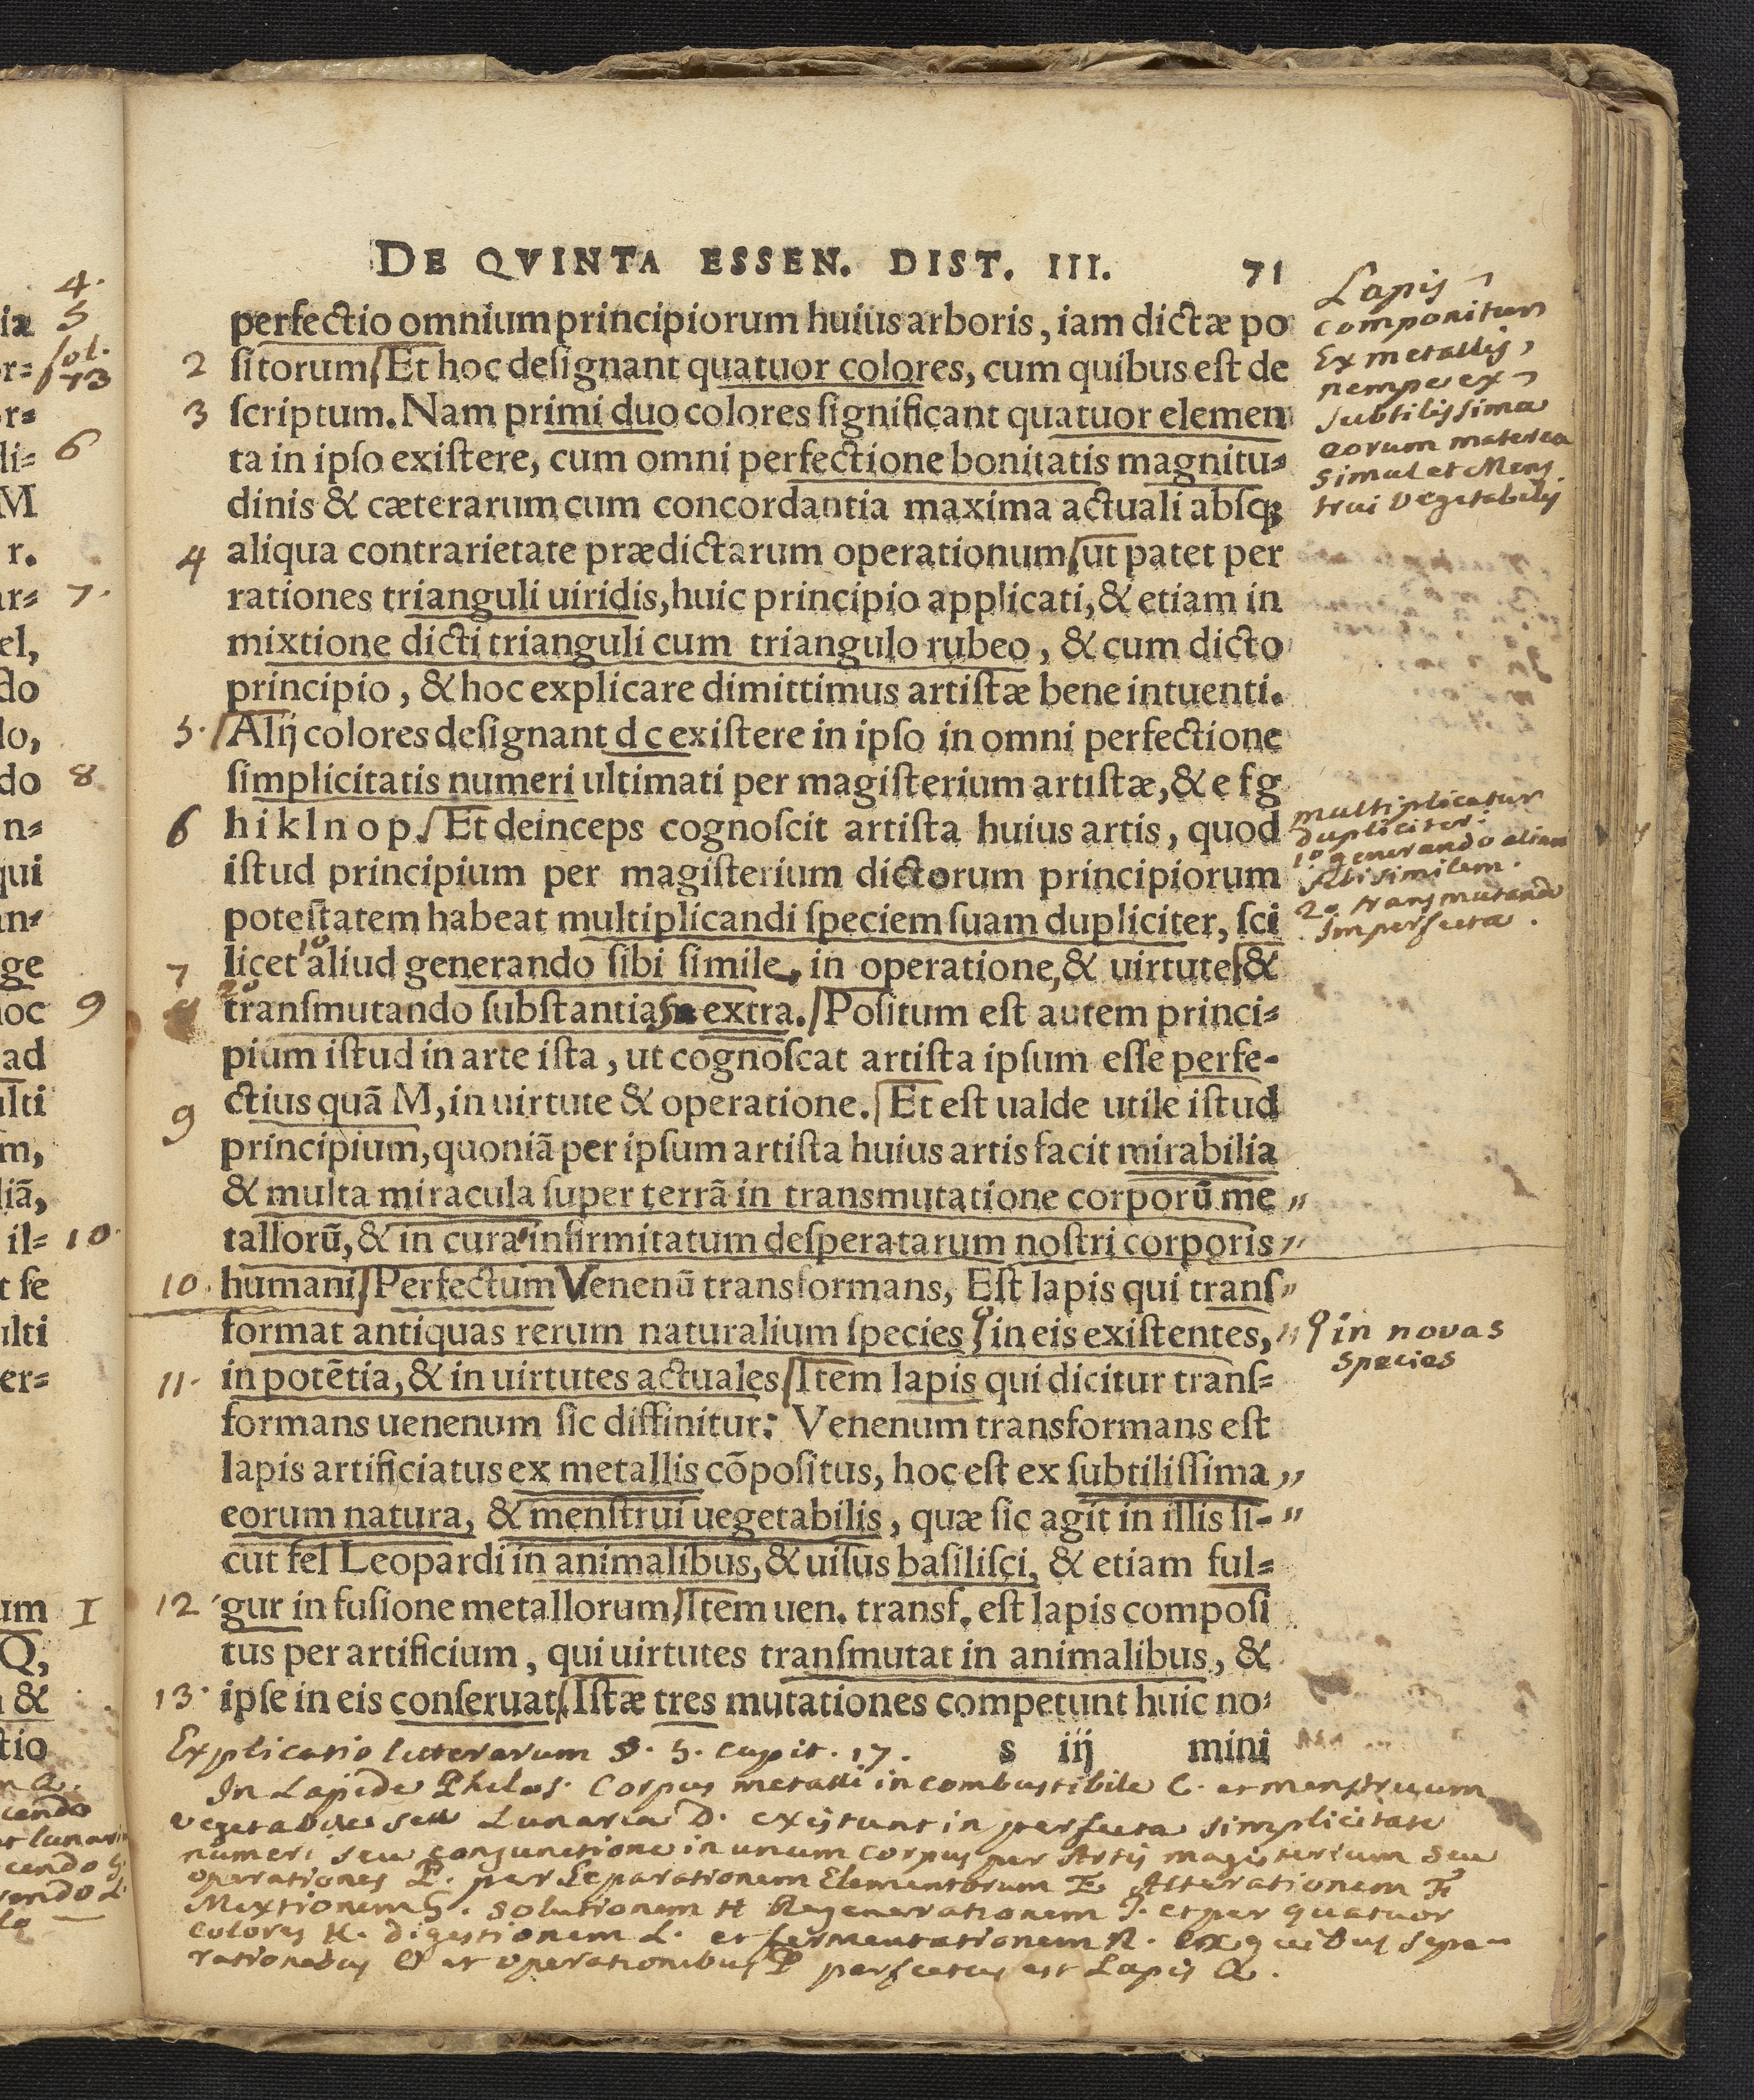 DE QVINTA ESSEN. DIST. III. 71
perfectio omnium principiorum huius arboris, iam dictæ po
2 ſitorum/Et hoc deſignant quatuor colores, cum quibus eſt de
3 ſcriptum. Nam primi duo colores ſignificant quatuor elemen
ta in ipſo exiſtere, cum omni perfectione bonitatis magnitu⸗
dinis & cæterarum cum concordantia maxima actuali abſq;
4 aliqua contrarietate prædictarum operationum/ut patet per
rationes trianguli uiridis, huic principio applicati, & etiam in
mixtione dicti trianguli cum triangulo rubeo, & cum dicto
principio, & hoc explicare dimittimus artiſtæ bene intuenti.
5. /Alij colores deſignant d c exiſtere in ipſo in omni perfectione
ſimplicitatis numeri ultimati per magiſterium artiſtæ, & e f g
6 h i k l n o p./Et deinceps cognoſcit artiſta huius artis, quod
iſtud principium per magiſterium dictorum principiorum
poteſtatem habeat multiplicandi ſpeciem ſuam dupliciter, ſci
7 licet 1º aliud generando ſibi ſimile, in operatione, & uirtute/&
8 2º tranſmutando ſubſtantiam extra./Poſitum eſt autem princi⸗
pium iſtud in arte iſta, ut cognoſcat artiſta ipſum eſſe perfe-
9 ctius quã M, in uirtute & operatione./Et eſt ualde utile iſtud
principium, quoniã per ipſum artiſta huius artis facit mirabilia
& multa miracula ſuper terrã in transmutatione corporũ me "
tallorũ, & in cura infirmitatum deſperatarum noſtri corporis "
10. humani/Perfectum Venenũ transformans, Eſt lapis qui tranſ "
format antiquas rerum naturalium ſpecies in eis exiſtentes, "
11. in potẽtia, & in uirtutes actuales/Item lapis qui dicitur tranſ⸗
formans uenenum ſic diffinitur: Venenum transformans eſt
lapis artificiatus ex metallis cõpoſitus, hoc eſt ex ſubtiliſſima "
eorum natura, & menſtrui uegetabilis, quæ ſic agit in illis ſi- "
cut fel Leopardi in animalibus, & uiſus baſiliſci, & etiam ful⸗
12 gur in fuſione metallorum/Item uen. transf. eſt lapis compoſi
tus per artificium, qui uirtutes tranſmutat in animalibus, &
13. ipſe in eis conſeruat/Iſtæ tres mutationes competunt huic no⸗
s iij mini
Lapis
componitur
Ex metallis,
nempe ex
subtilissima
eorum materia
simul et Mens
trui Vegetabilis
multiplicatur
dupliciter:
1º generando alium
sibi similem.
2º transmutando
Imperfecta.
in novas
species
Explicatio litterarum §. 5. capit. 17.
In Lapide Philos. Corpus metalli incombustibile C. et menstruum
vegetabile seu Lunaria D. existunt in perfecta simplicitate
numeri seu conjunctione in unum corpus per Artis magisterium seu
operationes P. per Separationem Elementorum E Alterationem F
Mixtionem G. solutionem H Regenerationem I. et per quatuor
colores K. digestionem L. et fermentationem N. Ex quibus sepa-
rationibus et operationibus P perfectus est Lapis Q.
4.
5
fol.
73
6
7.
8
9
10.
I
iæ
r⸗
r⸗
li⸗
M
r.
ar⸗
el,
do
lo,
do
n⸗
qui
an⸗
ge
hoc
ad
ulti
m,
liã,
il⸗
t ſe
ulti
er⸗
um
Q,
&
ctio